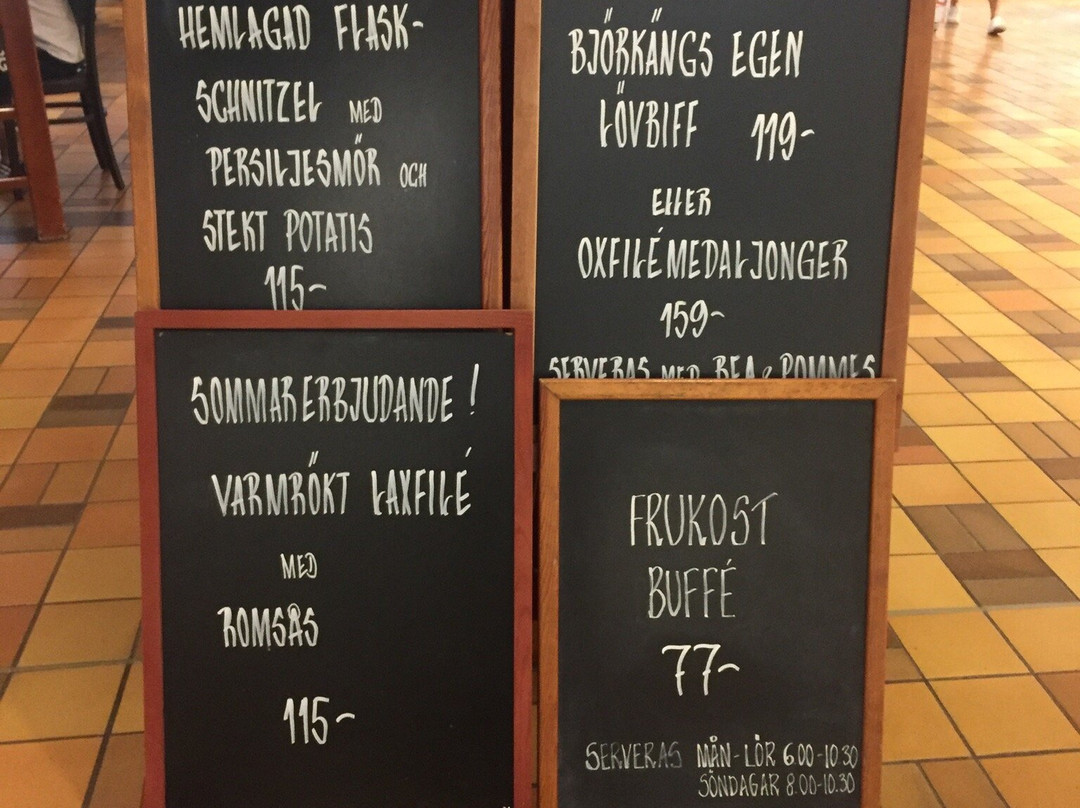 HEMLAGAD FLASK-
SCHNITZEL MED
PERSILJESMÖR OCH
STEKT POTATIS
115-
BJÖRKÄNGS EGEN
LÖVBIFF 119-
ELLER
OXFILÉMEDALJONGER
159-
SERVERAS MED BEA & POMMES
SOMMARERBJUDANDE!
VARMRÖKT LAXFILÉ
MED
ROMSÅS
115-
FRUKOST
BUFFÉ
77-
SERVERAS MÅN-LÖR 6.00-10.30
SÖNDAGAR 8.00-10.30